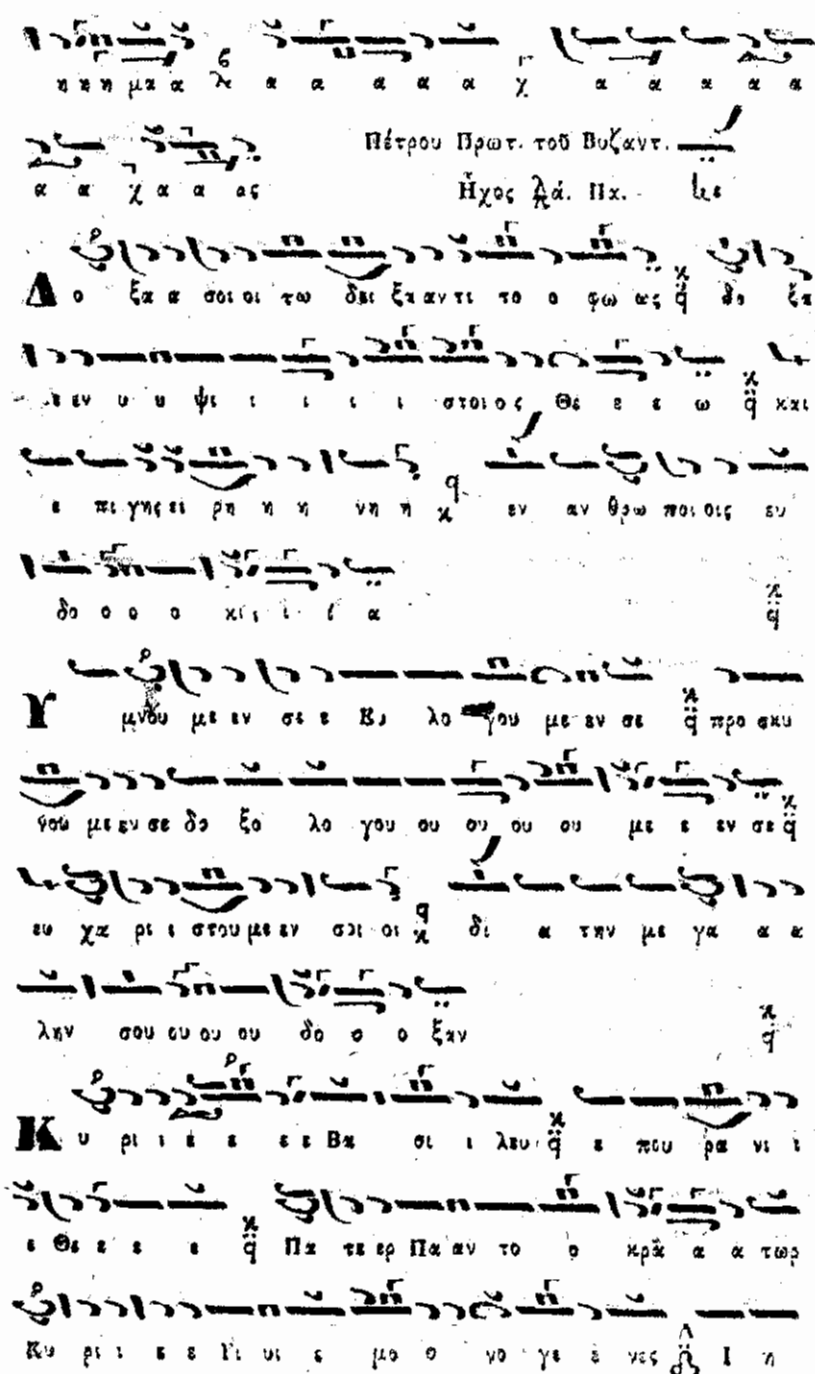 η η η μα α λ α α α α α χ α α α α α
α α χ α α ας Πέτρου Πρωτ. τοῦ Βυζαντ.
Ἦχος πλά. Πα. κε
Δ ο ξα α σοι οι τω δει ξα αν τι το ο φω ως q δο ξα
ε εν υ υ ψι ι ι ι ι στοι ο ς Θε ε ε ω q και
ε πι γης ει ρη η η νη η q εν αν θρω ποι οις ευ
δο ο ο ο κι ι ι ι α q
Υ μνου με εν σε ε Ευ λο γου με εν σε q προ σκυ
νου με εν σε δο ξο λο γου ου ου ου ου με ε εν σε q
ευ χα ρι ι στου με εν σοι οι q δι α την με γα α α
λην σου ου ου ου δο ο ο ξαν q
Κ υ ρι ι ε ε ε ε Βα σι ι λευ q ε που ρα νι ι
ε Θε ε ε ε q Πα τε ερ Πα αν το ο κρα α α τωρ
Κυ ρι ι ε ε Υι υι ε μο ο νο γε ε νες Ι η